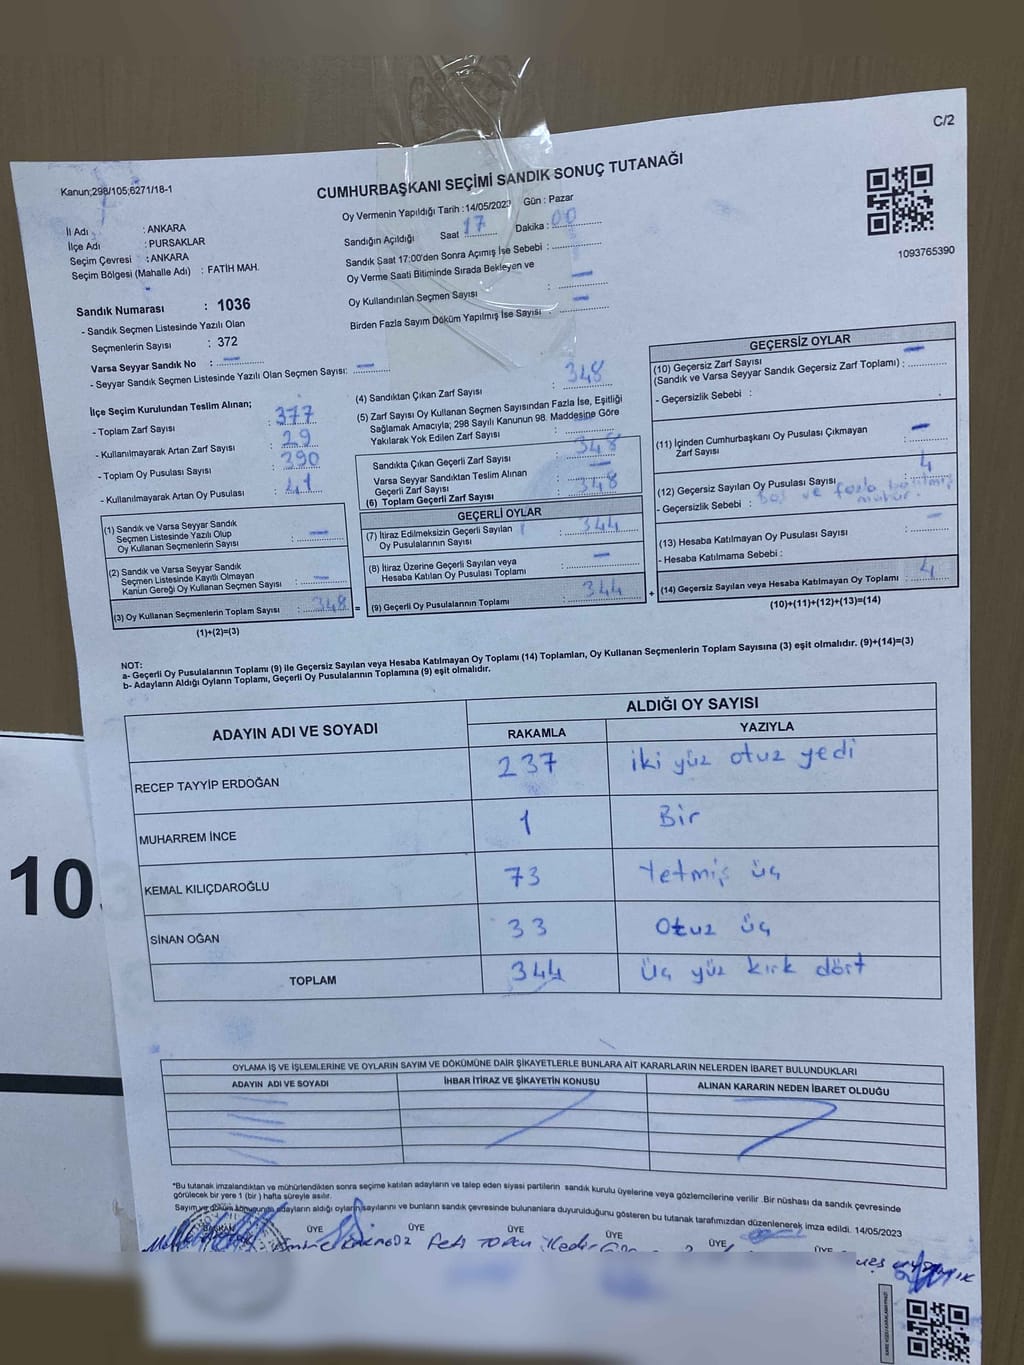 C/2
Kanun;298/105;6271/18-1
CUMHURBAŞKANI SEÇİMİ SANDIK SONUÇ TUTANAĞI
1093765390
İl Adı : ANKARA
İlçe Adı : PURSAKLAR
Seçim Çevresi : ANKARA
Seçim Bölgesi (Mahalle Adı) : FATİH MAH.
Oy Vermenin Yapıldığı Tarih : 14/05/2023 Gün : Pazar
Sandığın Açıldığı Saat 17 Dakika : 00
Sandık Saat 17:00'den Sonra Açımış İse Sebebi :
Oy Verme Saati Bitiminde Sırada Bekleyen ve
Oy Kullandırılan Seçmen Sayısı : —
Birden Fazla Sayım Döküm Yapılmış İse Sayısı : —
Sandık Numarası : 1036
- Sandık Seçmen Listesinde Yazılı Olan
Seçmenlerin Sayısı : 372
Varsa Seyyar Sandık No : —
- Seyyar Sandık Seçmen Listesinde Yazılı Olan Seçmen Sayısı: —
İlçe Seçim Kurulundan Teslim Alınan;
- Toplam Zarf Sayısı : 377
- Kullanılmayarak Artan Zarf Sayısı : 29
- Toplam Oy Pusulası Sayısı : 390
- Kullanılmayarak Artan Oy Pusulası : 41
(1) Sandık ve Varsa Seyyar Sandık
Seçmen Listesinde Yazılı Olup
Oy Kullanan Seçmenlerin Sayısı : —
(2) Sandık ve Varsa Seyyar Sandık
Seçmen Listesinde Kayıtlı Olmayan
Kanun Gereği Oy Kullanan Seçmen Sayısı : —
(3) Oy Kullanan Seçmenlerin Toplam Sayısı : 348
(1)+(2)=(3)
(4) Sandıktan Çıkan Zarf Sayısı : 348
(5) Zarf Sayısı Oy Kullanan Seçmen Sayısından Fazla İse, Eşitliği
Sağlamak Amacıyla; 298 Sayılı Kanunun 98. Maddesine Göre
Yakılarak Yok Edilen Zarf Sayısı :
Sandıkta Çıkan Geçerli Zarf Sayısı : 348
Varsa Seyyar Sandıktan Teslim Alınan
Geçerli Zarf Sayısı : —
(6) Toplam Geçerli Zarf Sayısı : 348
GEÇERLİ OYLAR
(7) İtiraz Edilmeksizin Geçerli Sayılan
Oy Pusulalarının Sayısı : 344
(8) İtiraz Üzerine Geçerli Sayılan veya
Hesaba Katılan Oy Pusulası Toplamı : —
= (9) Geçerli Oy Pusulalarının Toplamı : 344
GEÇERSİZ OYLAR
(10) Geçersiz Zarf Sayısı
(Sandık ve Varsa Seyyar Sandık Geçersiz Zarf Toplamı) : —
- Geçersizlik Sebebi :
(11) İçinden Cumhurbaşkanı Oy Pusulası Çıkmayan
Zarf Sayısı : —
(12) Geçersiz Sayılan Oy Pusulası Sayısı : 4
- Geçersizlik Sebebi : Boş ve fazla basılmış
mühür.
(13) Hesaba Katılmayan Oy Pusulası Sayısı : —
- Hesaba Katılmama Sebebi :
+ (14) Geçersiz Sayılan veya Hesaba Katılmayan Oy Toplamı : 4
(10)+(11)+(12)+(13)=(14)
NOT:
a- Geçerli Oy Pusulalarının Toplamı (9) ile Geçersiz Sayılan veya Hesaba Katılmayan Oy Toplamı (14) Toplamları, Oy Kullanan Seçmenlerin Toplam Sayısına (3) eşit olmalıdır. (9)+(14)=(3)
b- Adayların Aldığı Oyların Toplamı, Geçerli Oy Pusulalarının Toplamına (9) eşit olmalıdır.
ADAYIN ADI VE SOYADI ALDIĞI OY SAYISI
RAKAMLA YAZIYLA
RECEP TAYYİP ERDOĞAN 237 iki yüz otuz yedi
MUHARREM İNCE 1 Bir
KEMAL KILIÇDAROĞLU 73 Yetmiş üç
SİNAN OĞAN 33 Otuz üç
TOPLAM 344 Üç yüz kırk dört
10
OYLAMA İŞ VE İŞLEMLERİNE VE OYLARIN SAYIM VE DÖKÜMÜNE DAİR ŞİKAYETLERLE BUNLARA AİT KARARLARIN NELERDEN İBARET BULUNDUKLARI
ADAYIN ADI VE SOYADI İHBAR İTİRAZ VE ŞİKAYETİN KONUSU ALINAN KARARIN NEDEN İBARET OLDUĞU
*Bu tutanak imzalandıktan ve mühürlendikten sonra seçime katılan adayların ve talep eden siyasi partilerin sandık kurulu üyelerine veya gözlemcilerine verilir .Bir nüshası da sandık çevresinde
görülecek bir yere 1 (bir ) hafta süreyle asılır.
Sayım ve döküm sonucunda adayların aldığı oyların sayılarını ve bunların sandık çevresinde bulunanlara duyurulduğunu gösteren bu tutanak tarafımızdan düzenlenerek imza edildi. 14/05/2023
BAŞKAN ÜYE ÜYE ÜYE ÜYE ÜYE ÜYE